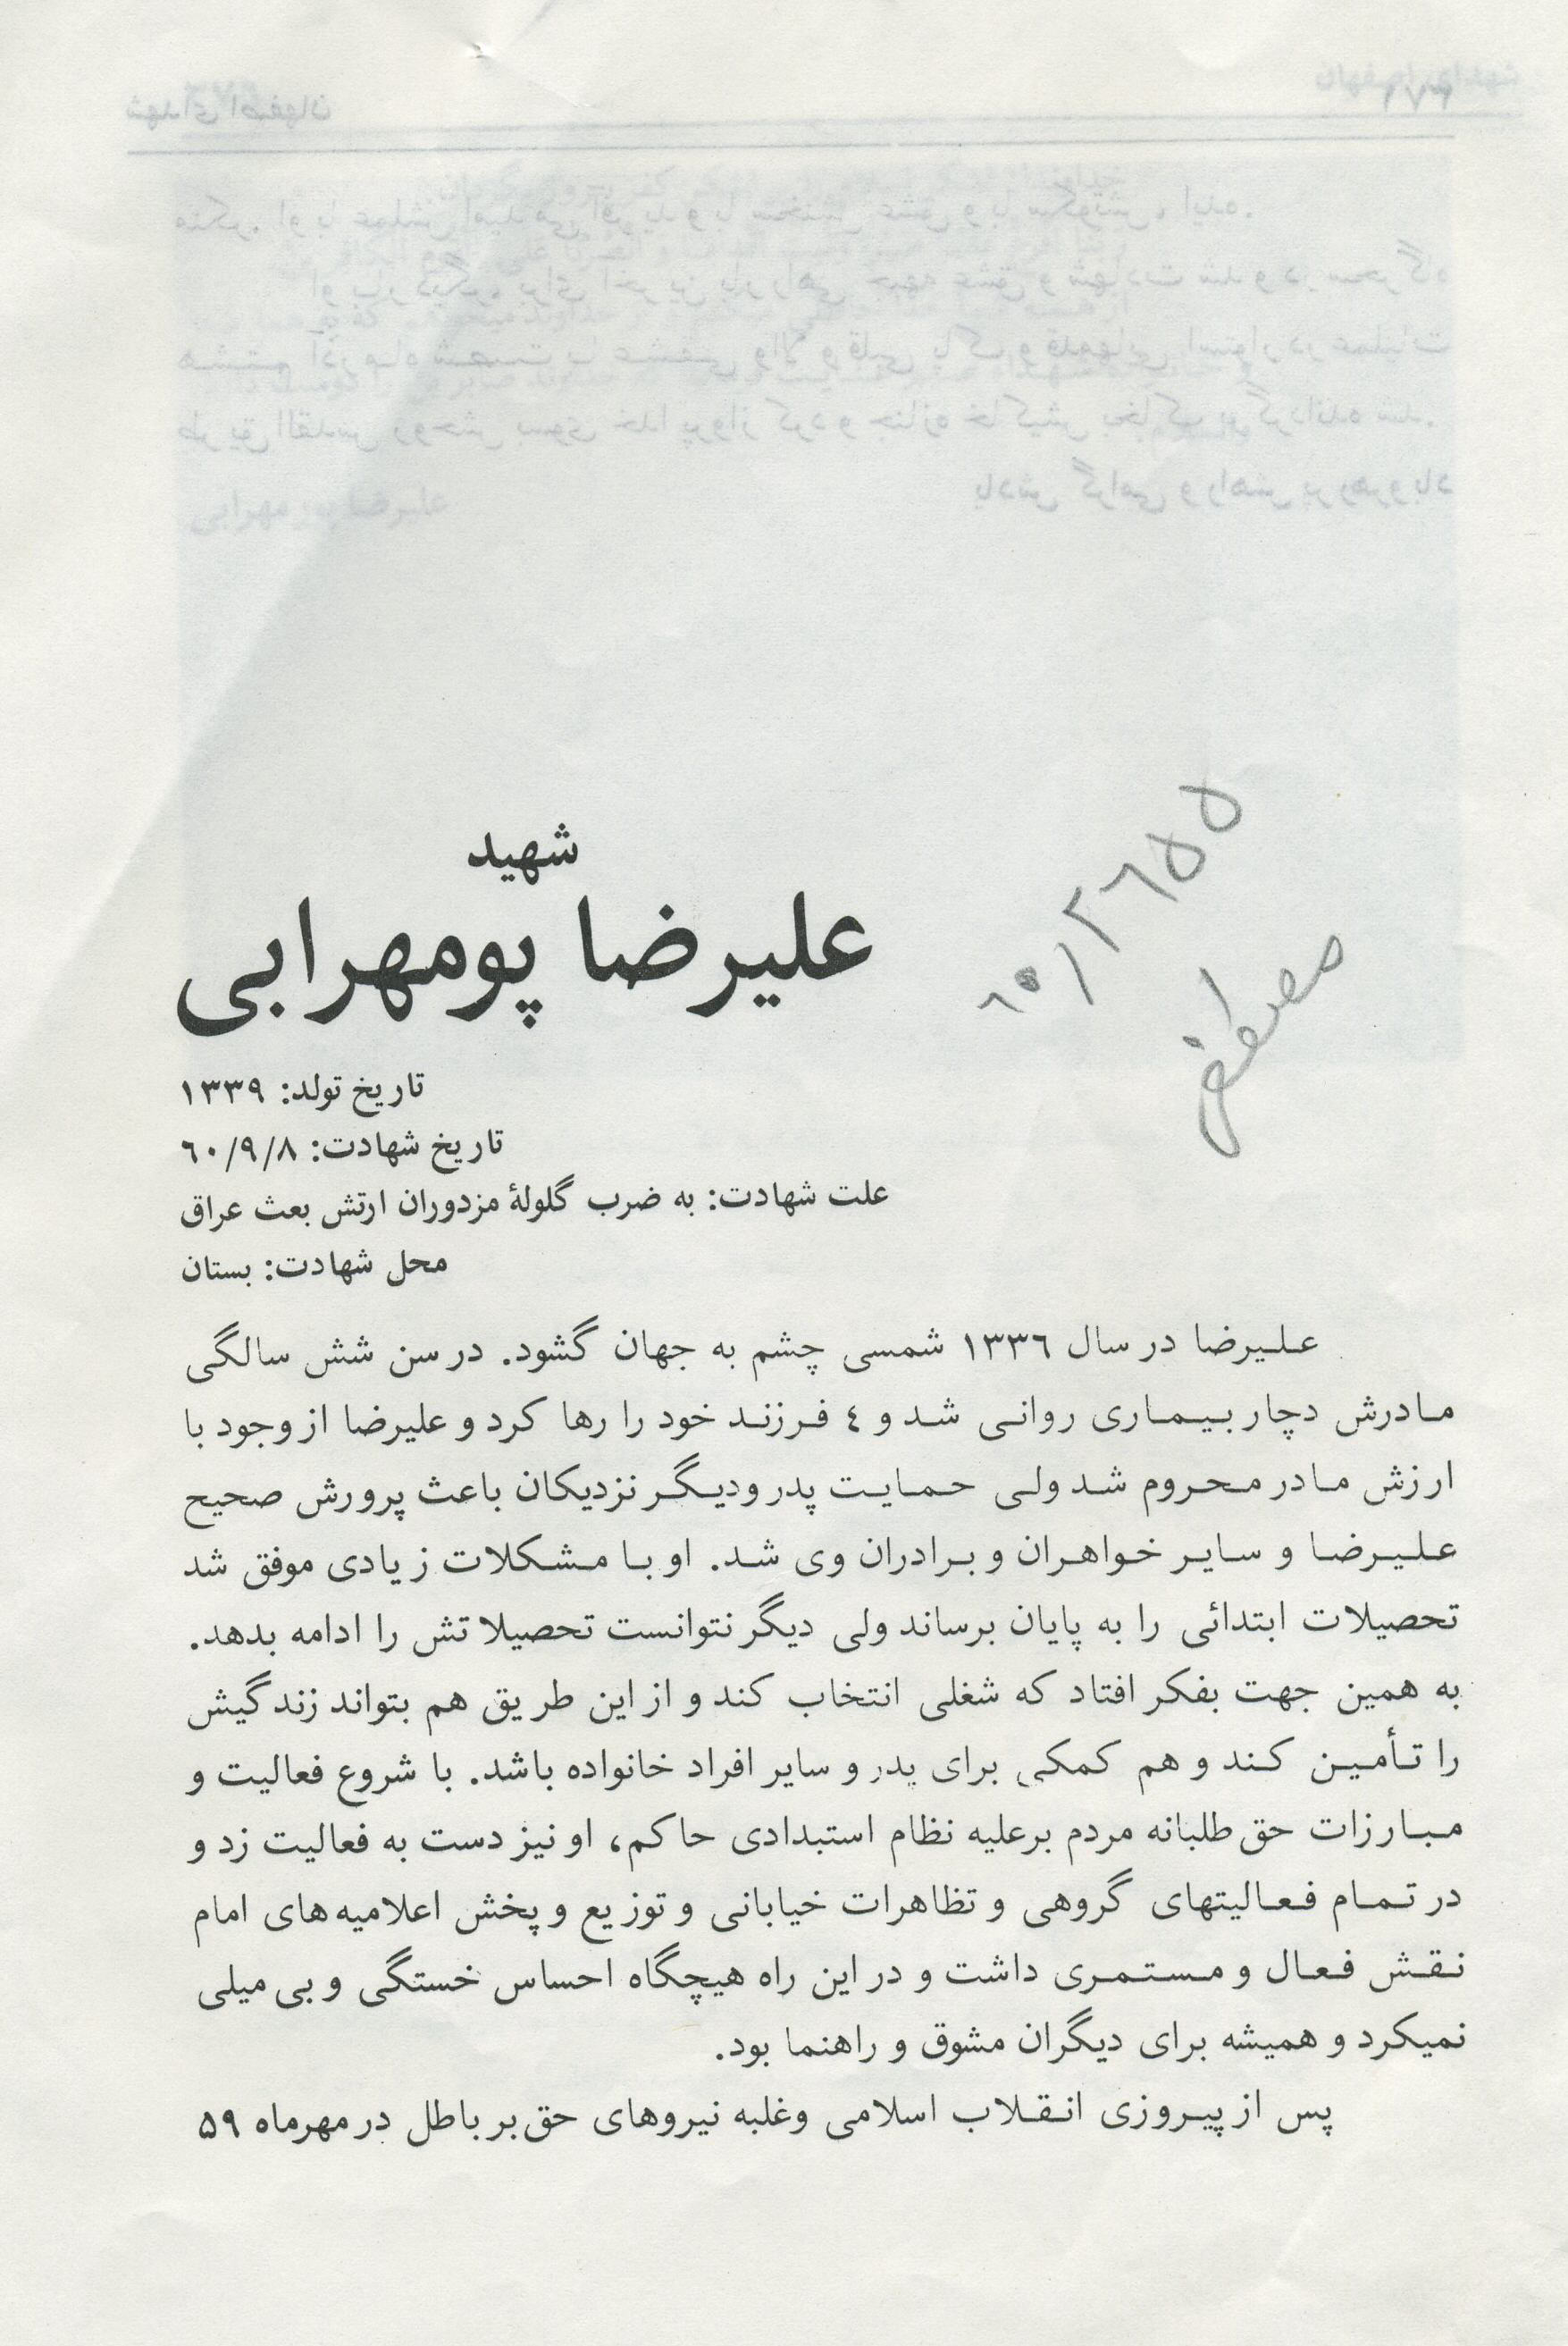 شهید
علیرضا پومهرابی
۶۰/۲۶۵۵
مصطفی
تاریخ تولد: ۱۳۳۹
تاریخ شهادت: ۶۰/۹/۸
علت شهادت: به ضرب گلولهٔ مزدوران ارتش بعث عراق
محل شهادت: بستان
علیرضا در سال ۱۳۳۶ شمسی چشم به جهان گشود. در سن شش سالگی
مادرش دچار بیماری روانی شد و ٤ فرزند خود را رها کرد و علیرضا از وجود با
ارزش مادر محروم شد ولی حمایت پدر و دیگر نزدیکان باعث پرورش صحیح
علیرضا و سایر خواهران و برادران وی شد. او با مشکلات زیادی موفق شد
تحصیلات ابتدائی را به پایان برساند ولی دیگر نتوانست تحصیلاتش را ادامه بدهد.
به همین جهت بفکر افتاد که شغلی انتخاب کند و از این طریق هم بتواند زندگیش
را تأمین کند و هم کمکی برای پدر و سایر افراد خانواده باشد. با شروع فعالیت و
مبارزات حق طلبانه مردم برعلیه نظام استبدادی حاکم، او نیز دست به فعالیت زد و
در تمام فعالیتهای گروهی و تظاهرات خیابانی و توزیع و پخش اعلامیه های امام
نقش فعال و مستمری داشت و در این راه هیچگاه احساس خستگی و بی میلی
نمیکرد و همیشه برای دیگران مشوق و راهنما بود.
پس از پیروزی انقلاب اسلامی وغلبه نیروهای حق بر باطل در مهرماه ۵۹